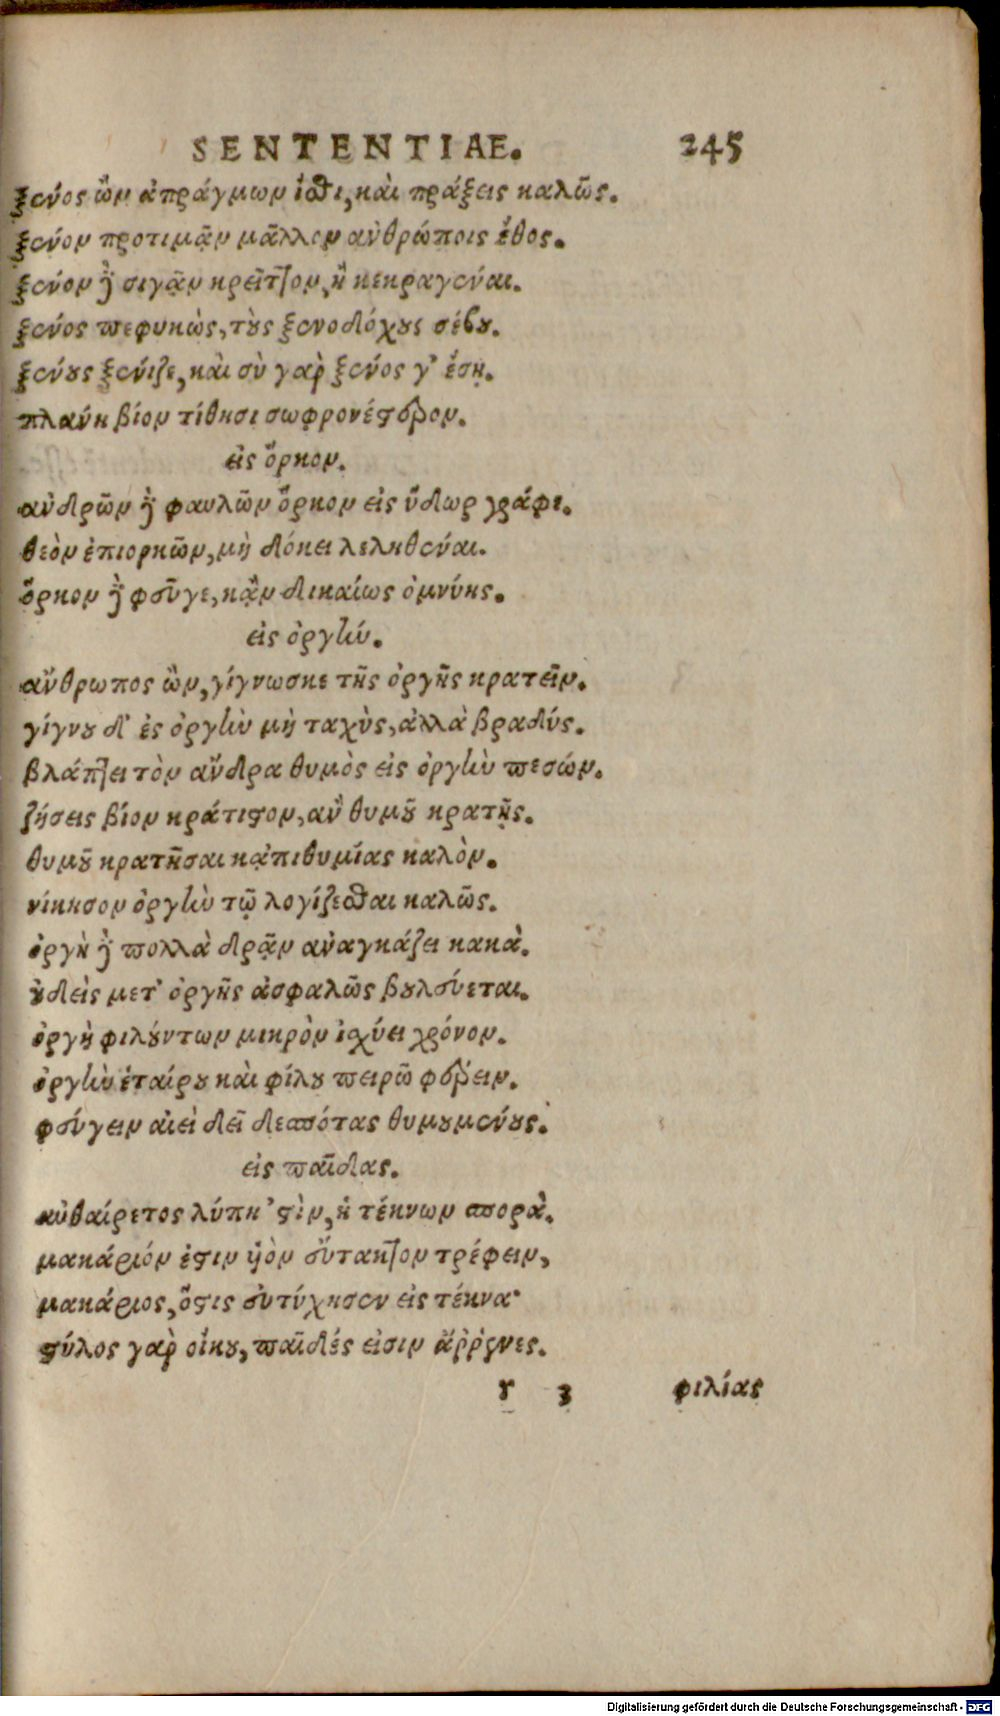 SENTENTIAE. 245
ξένος ὢν ἀπράγμων ἴσθι, καὶ πράξεις καλῶς.
ξένον προτιμᾷν μᾶλλον ἀνθρώποις ἔθος.
ξένον ὂντα σιγᾷν κρεῖττον, ἢ κεκραγέναι.
ξένος πεφυκὼς, τοὺς ξενοδόχους σέβου.
ξένους ξένιζε, καὶ σὺ γὰρ ξένος γ' ἔσῃ.
πλάνη βίον τίθησι σωφρονέστερον.
εἰς ὅρκον.
ἀνδρῶν δὲ φαυλῶν ὅρκον εἰς ὕδωρ γράφε.
θεὸν ἐπιορκῶν, μὴ δόκει λεληθέναι.
ὅρκον δὲ φεῦγε, κᾂν δικαίως ὀμνύῃς.
εἰς ὀργήν.
ἄνθρωπος ὢν, γίγνωσκε τῆς ὀργῆς κρατεῖν.
γίγνου δ' ἐς ὀργὴν μὴ ταχὺς, ἀλλὰ βραδύς.
βλάπτει τὸν ἄνδρα θυμὸς εἰς ὀργὴν πεσών.
ζήσεις βίον κράτιστον, ἂν θυμοῦ κρατῇς.
θυμοῦ κρατῆσαι κἀπιθυμίας καλὸν.
νίκησον ὀργὴν τῷ λογίζεσθαι καλῶς.
ὀργὴ δὲ πολλὰ δρᾷν ἀναγκάζει κακὰ.
οὐδεὶς μετ' ὀργῆς ἀσφαλῶς βουλεύεται.
ὀργὴ φιλούντων μικρὸν ἰσχύει χρόνον.
ὀργὴν ἑταίρου καὶ φίλου πειρῶ φέρειν.
φεύγειν αἰεὶ δεῖ δεσπότας θυμουμένους.
εἰς παῖδας.
αὐθαίρετος λύπη 'στὶν, ἡ τέκνων σπορὰ.
μακάριόν ἐστιν υἱὸν εὔτακτον τρέφειν,
μακάριος, ὅστις εὐτύχησεν εἰς τέκνα·
στύλος γὰρ οἴκου, παῖδές εἰσιν ἄῤῥενες.
r 3 φιλίας
Digitalisierung gefördert durch die Deutsche Forschungsgemeinschaft - DFG